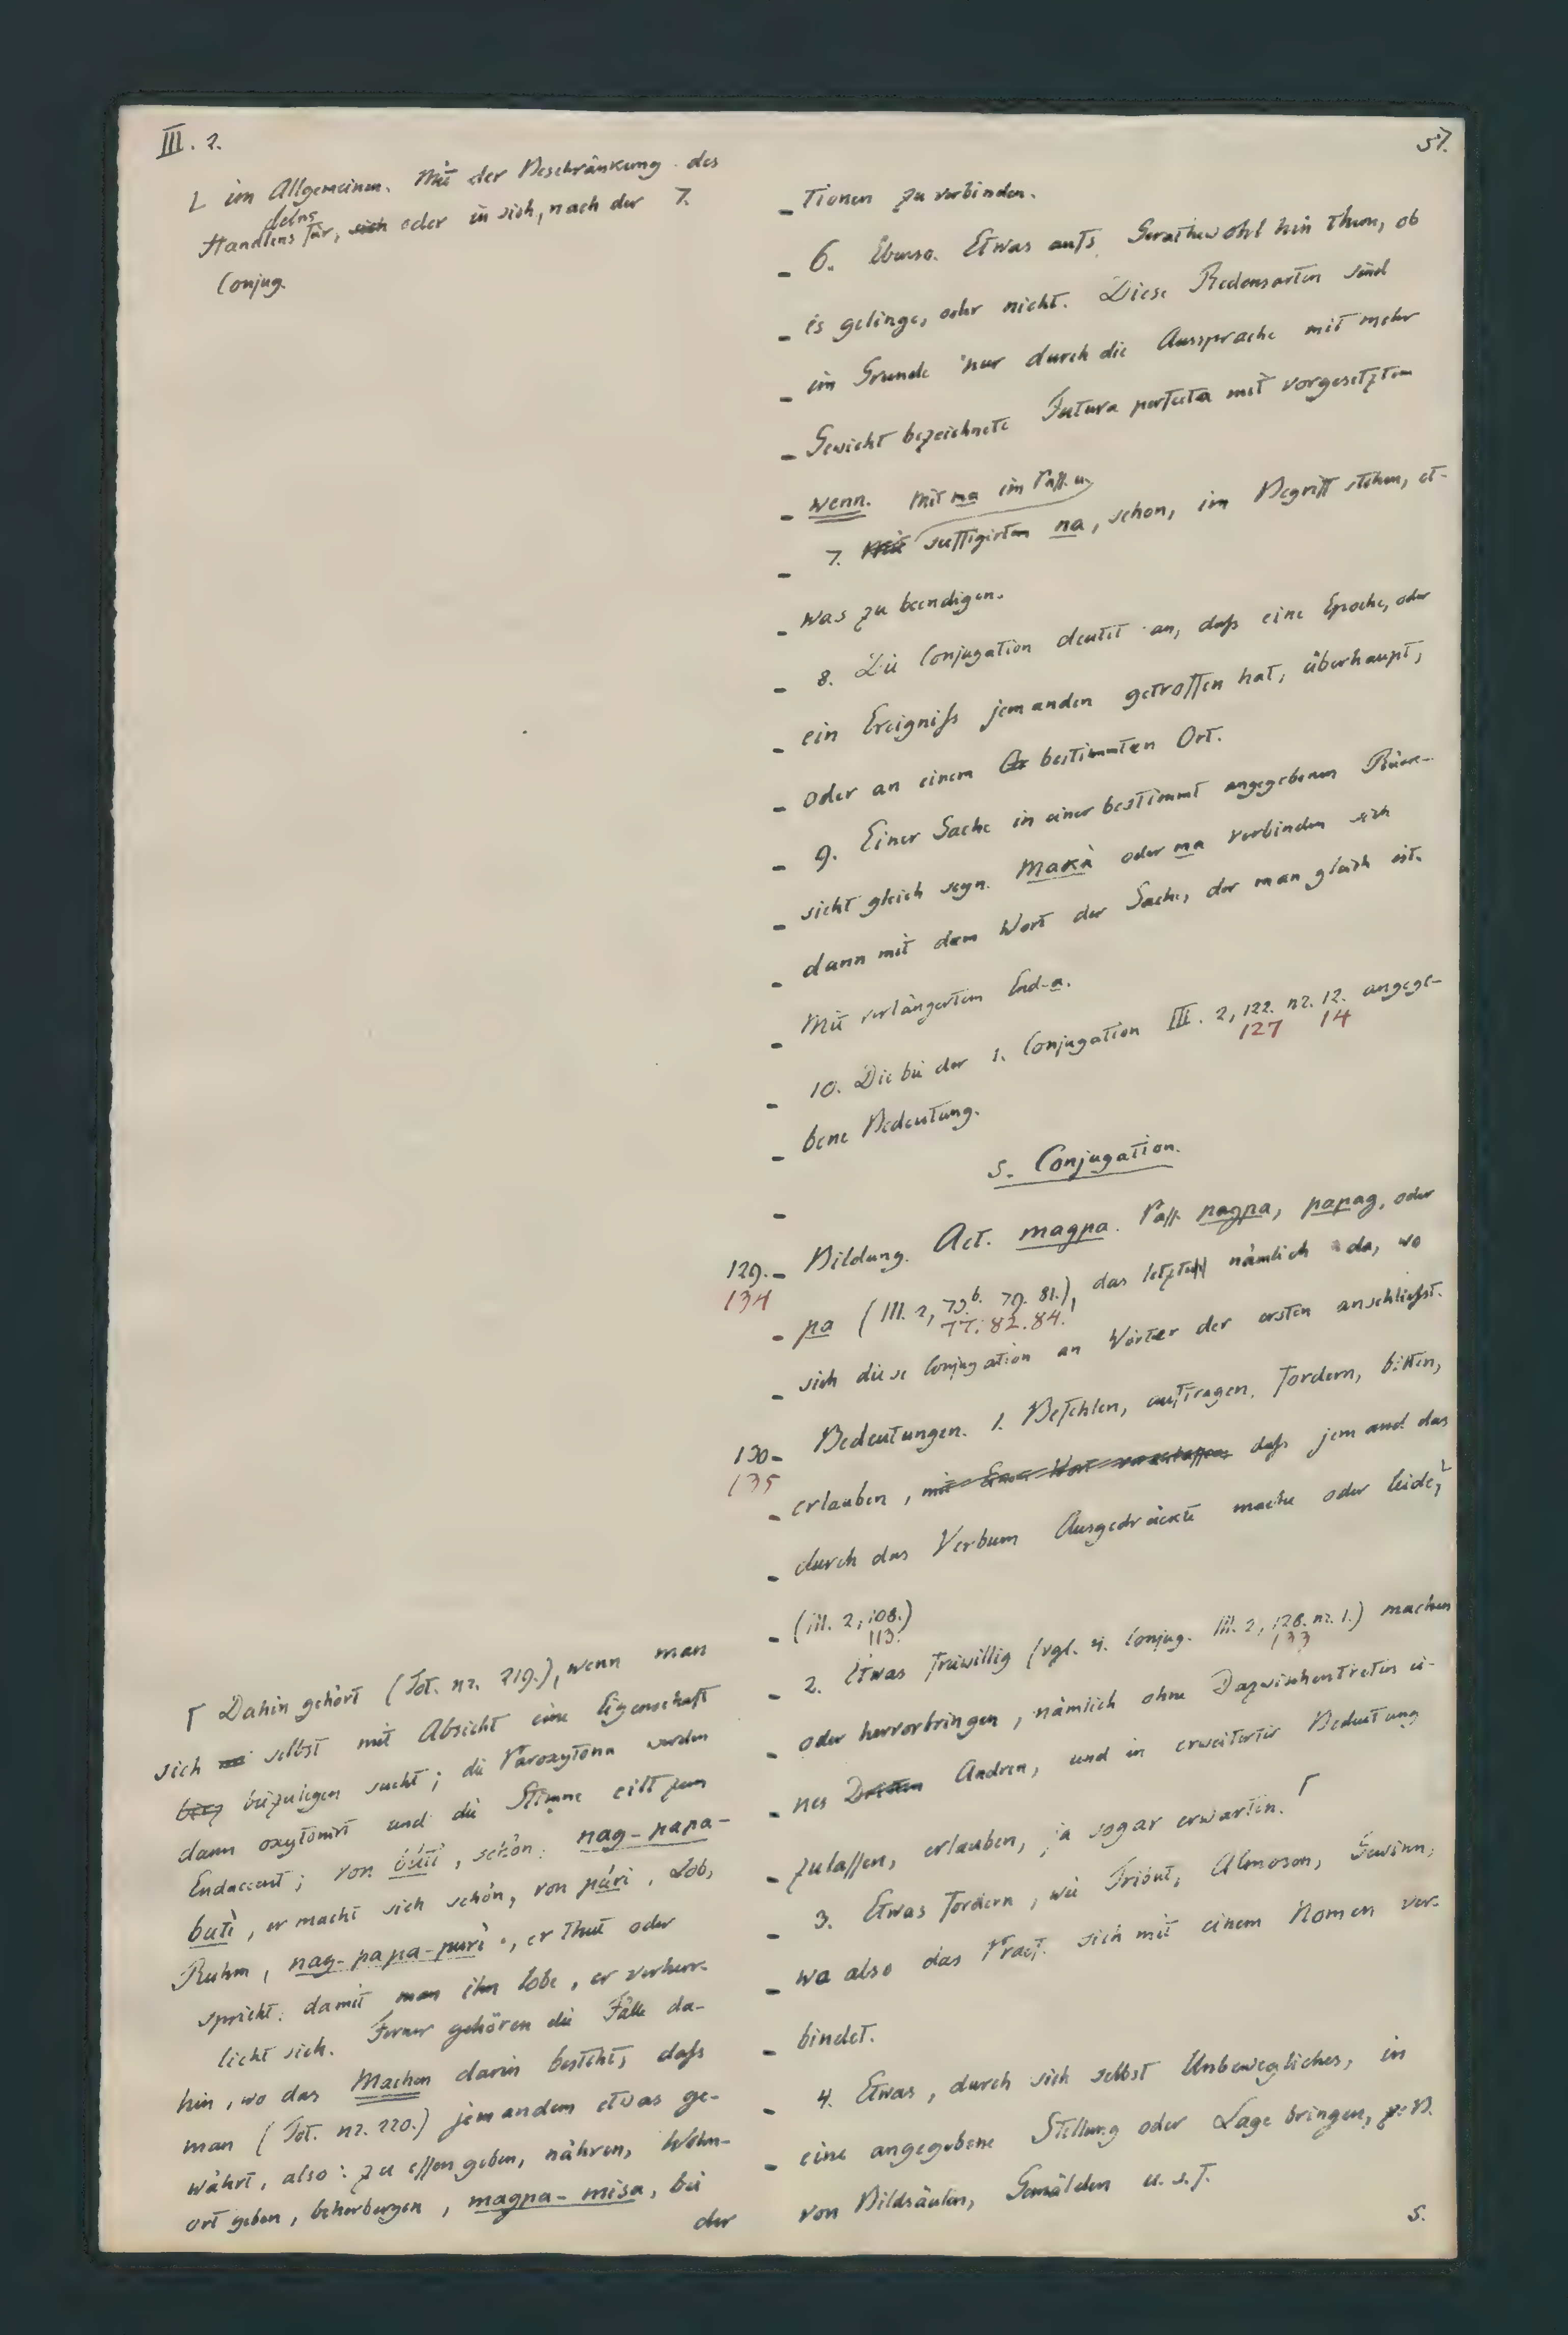 III. 2.
57.
L im Allgemeinen. Mit der Beschränkung des
Handelns für, sich oder in sich, nach der 7.
Conjug.
tionen zu verbinden.
6. Ebenso. Etwas aufs Gerathewohl hin thun, ob
es gelinge, oder nicht. Diese Redensarten sind
im Grunde nur durch die Aussprache mit mehr
Gewicht bezeichnete Futura perfecta mit vorgesetztem
wenn. Mit ma im Pass. u.
7. Mit suffigirtem na, schon, im Begriff stehen, et-
was zu beendigen.
8. Die Conjugation deutet an, dafs eine Epoche, oder
ein Ereignifs jemanden getroffen hat, überhaupt,
oder an einem bestimmten Ort.
9. Einer Sache in einer bestimmt angegebenen Rück-
sicht gleich seyn. Makà oder ma verbinden sich
dann mit dem Wort der Sache, der man gleich ist.
Mit verlängertem End-a.
10. Die bei der 1. Conjugation III. 2, 122. nr. 12. angege-
127 14
bene Bedeutung.
5. Conjugation.
129. Bildung. Act. magpa. Pass. pagpa, papag, oder
134
pa (III. 2, 73b. 79. 81.), das letzte nämlich da, wo
77. 82. 84.
sich diese Conjugation an Wörter der ersten anschliefst.
130 Bedeutungen. 1. Befehlen, auftragen, fordern, bitten,
135
erlauben, dafs jemand das
durch das Verbum Ausgedrückte mache oder leide,
(III. 2, 108.)
113.
2. Etwas freiwillig (vgl. 4. Conjug. III. 2, 128. nr. 1.) machen
133
oder hervorbringen, nämlich ohne Dazwischentreten ei-
nes Dritten Andren, und in erweiterter Bedeutung
zulassen, erlauben, ja sogar erwarten. Γ
3. Etwas fordern, wie Tribut, Almosen, Gewinn,
wo also das Praef. sich mit einem Nomen ver-
bindet.
4. Etwas, durch sich selbst Unbewegliches, in
eine angegebene Stellung oder Lage bringen, z. B.
von Bildsäulen, Gemälden u. s. f.
5.
Γ Dahin gehört (Tot. nr. 219.), wenn man
sich selbst mit Absicht eine Eigenschaft
beizulegen sucht; die Paroxytona werden
dann oxytonirt und die Stimme eilt zum
Endaccent; von búti, schön, nag-papa-
buti, er macht sich schön, von púri, Lob,
Ruhm, nag-papa-puri, er thut oder
spricht, damit man ihn lobe, er verherr-
licht sich. Ferner gehören die Fälle da-
hin, wo das Machen darin besteht, dafs
man (Tot. nr. 220.) jemandem etwas ge-
währt, also: zu essen geben, nähren, Wohn-
ort geben, beherbergen, magpa-misa, bei
der